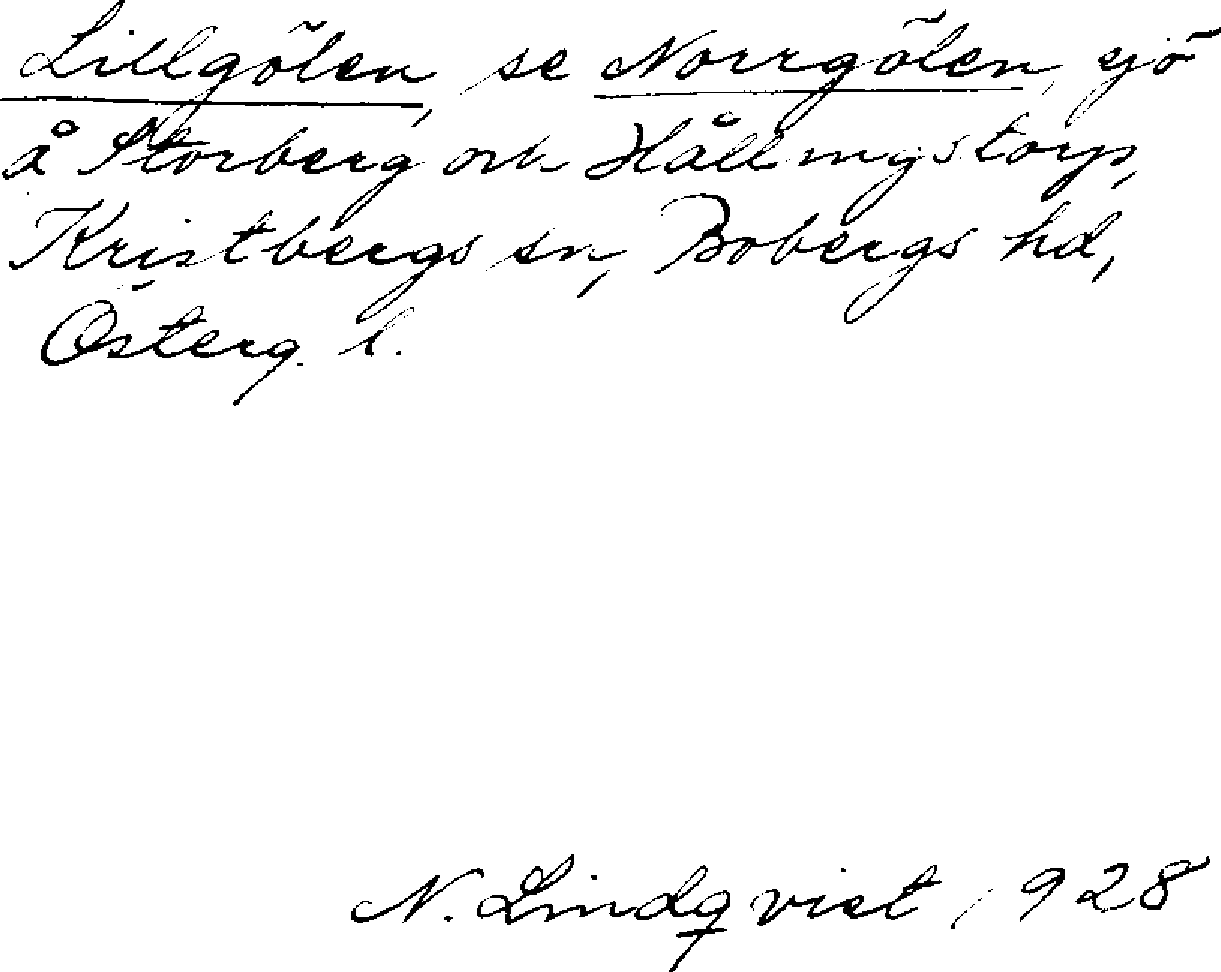 Lillgölen, se Norrgölen, sjö
å Storberg och Hållingstorp,
Kristbergs sn, Bobergs hd,
Österg. l.
N. Lindqvist 1928